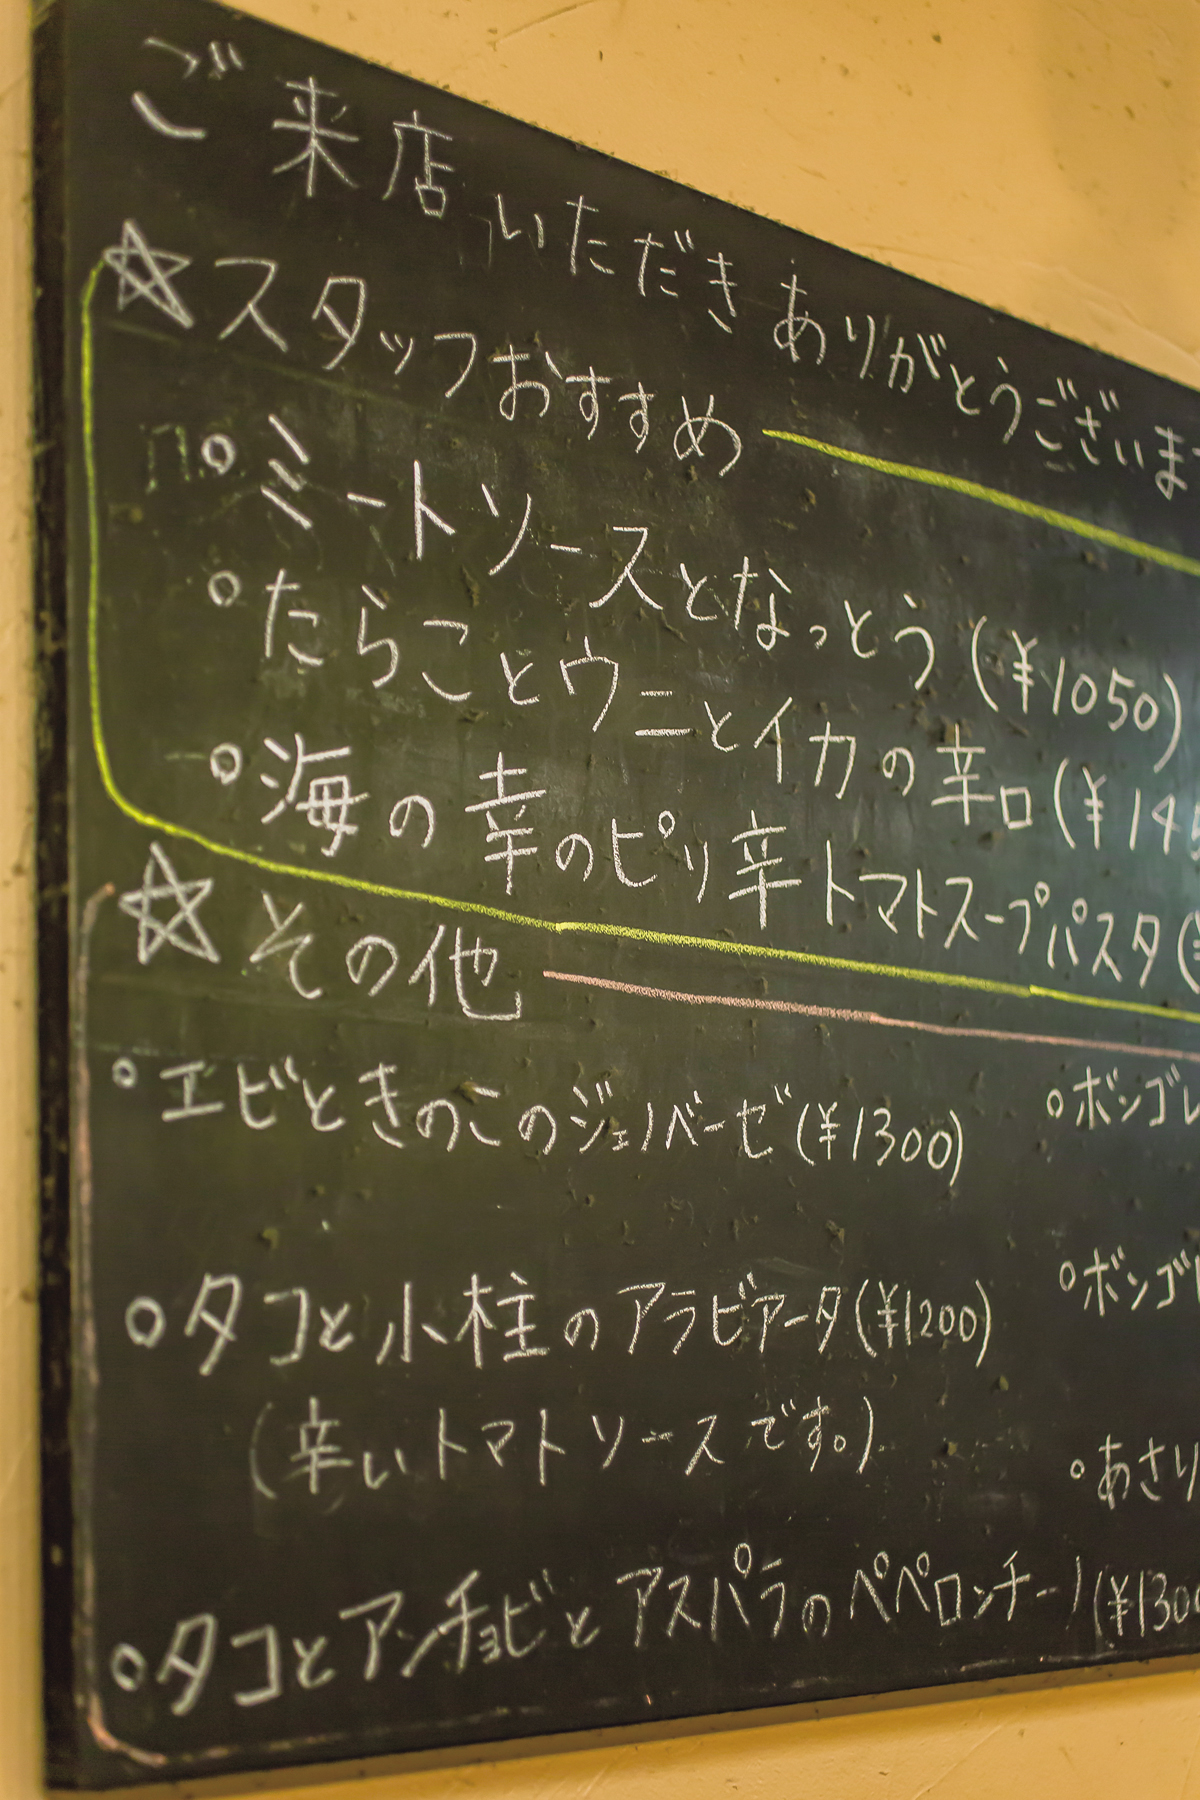 ご来店いただきありがとうございま
☆スタッフおすすめ
○ミートソースとなっとう(¥1050)
○たらことウニとイカの辛口(¥14
○海の幸のピリ辛トマトスープパスタ(
☆その他
○エビときのこのジェノベーゼ(¥1300)
○ボンゴレ
○タコと小柱のアラビアータ(¥1200)
(辛いトマトソースです。)
○ボンゴレ
○あさり
○タコとアンチョビとアスパラのペペロンチーノ(¥1300